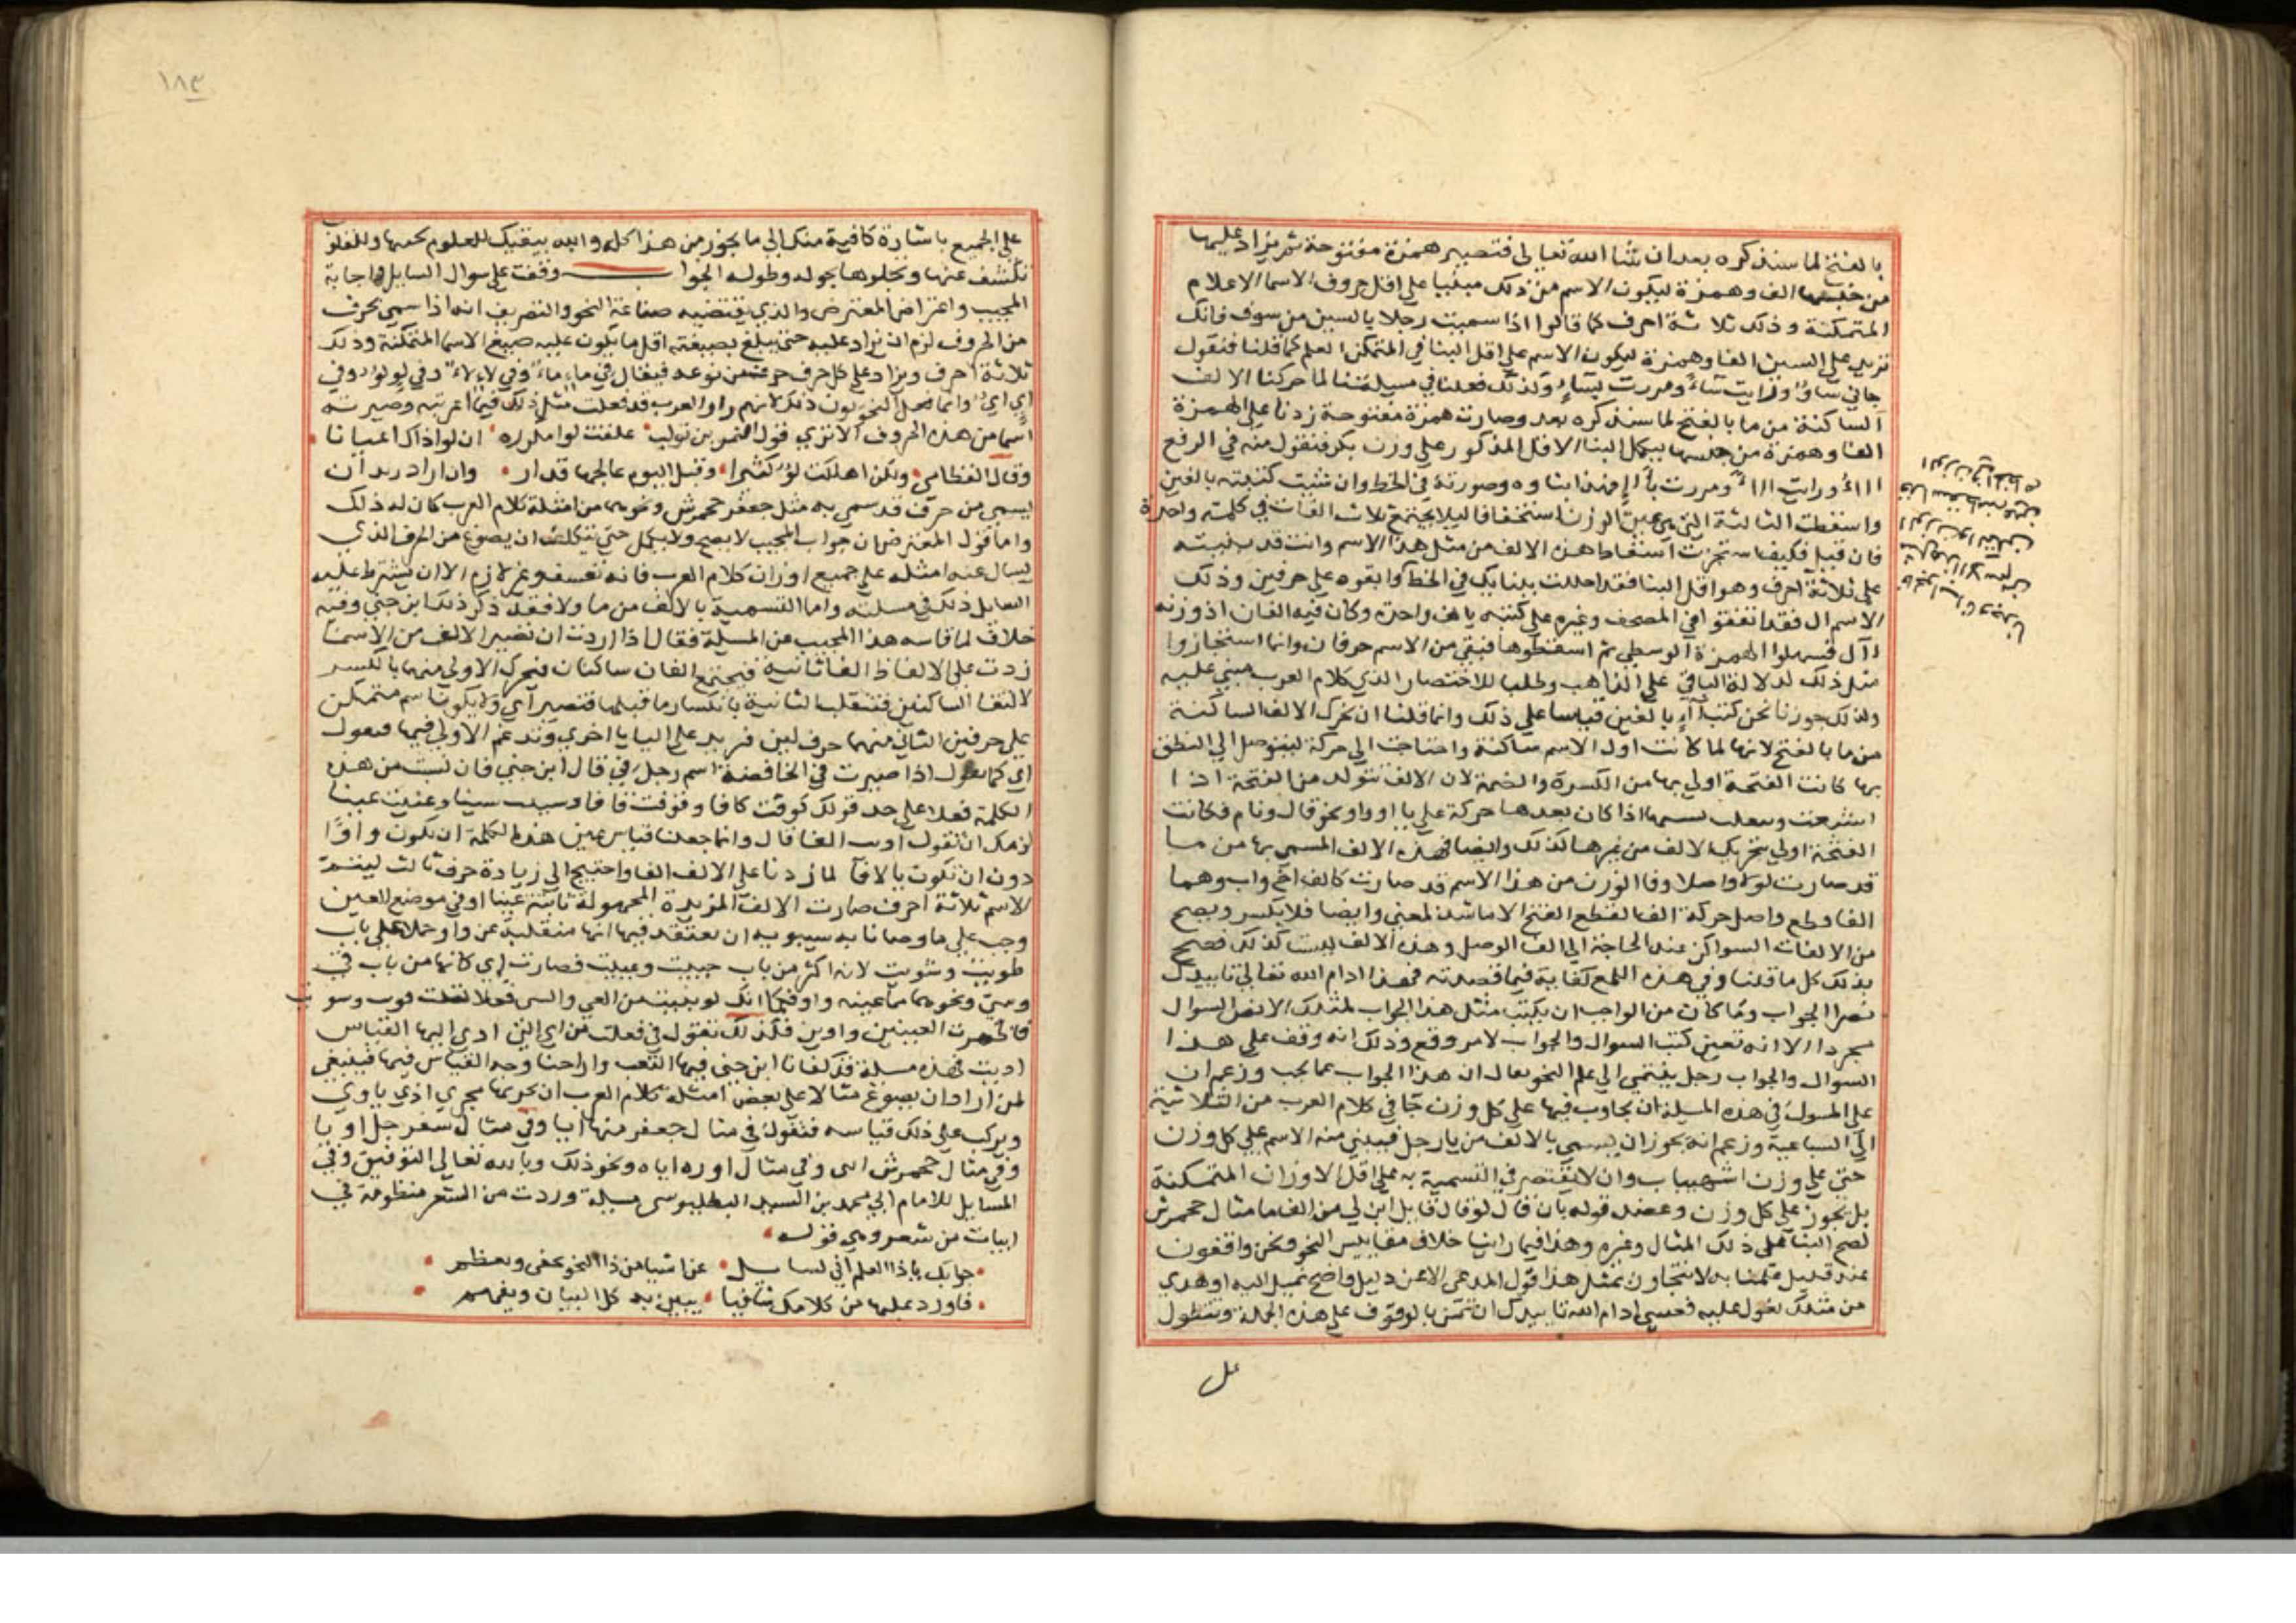 بالفتح لما سنذكره بعد ان شا الله تعالى فتصير همزة مفتوحة ثم يزاد عليها
من جنسها الف وهمزة ليكون الاسم من ذلك مبنيا على اقل حروف الاسما الاعلام
المتمكنة وذلك ثلاثة احرف كما قالوا اذا سميت رجلا بالسين من سوف فانك
تزيد على السين الفا وهمزة ليكون الاسم على اقل البنا في المتمكن العلم كما قلنا فتقول
جاني ساؤ ورايت ساءً ومررت بساءٍ وكذلك فعلنا في مسيلتنا لما حركنا الالف
الساكنة من ما بالفتح لما سنذكره بعد وصارت همزة مفتوحة زدنا على الهمزة
الفا وهمزة من جنسها ليكمل البنا الاقل المذكور على وزن بكر فنقول منه في الرفع
اااءٌ ورايت اااءً ومررت بااءٍ وصورته في الخط وان شيت كتبته بالفين
واسقطت الثالثة التي هي عين الوزن استخفافا ليلا يجتمع ثلاث الفات في كلمة واحدة
فان قيل فكيف استجزت اسقاط هذه الالف من مثل هذا الاسم وانت قد بنيته
على ثلاثة احرف وهو اقل البنا فقد اخللت ببنايك في الخط وابقوه على حرفين وذلك
الاسم ال فقد اتفقوا في المصحف وغيره على كتبه بالف واحدة وكان فيه الفان اذ وزنه
اآل فسهلوا الهمزة الوسطى ثم اسقطوها فبقي من الاسم حرفان وانما استجازوا
مثل ذلك لدلالة الباقي على الذاهب وطلبا للاختصار الذي كلام العرب مبني عليه
ولذلك جوزنا نحن كتب آاءٍ بالفين قياسا على ذلك وانما قلنا ان نحرك الالف الساكنة
من ما بالفتح لانها لما كانت اول الاسم ساكنة واحتاجت الى حركة ليتوصل الى النطق
بها كانت الفتحة اولى بها من الكسرة والضمة لان الالف تتولد من الفتحة اذا
اشبعت اذا كان بعدها حركة على يا او واو نحو قال ونام فكانت
الفتحة اولى بتحريك الالف من غيرها لذلك وايضا فهذه الالف المسمى بها من ما
قد صارت اولا واصلا وفا الوزن من هذا الاسم قد صارت كالف اخ واب وهما
الفا قطع واصل حركة الف القطع الفتح الا ما شذ لمعنى وايضا فلا يكسر ويصح
من الالفات السواكن عند الحاجة الى الف الوصل وهذه الالف ليست كذلك فصح
بذلك كل ما قلنا وفي هذه اللمع كفاية فيما قصدته فهذا ادام الله تعالى تاييدك
نص الجواب وما كان من الواجب ان يكتب مثل هذا الجواب لمثلك الا نص السوال
مجردا الا انه تعين كتب السوال والجواب لامر وقع وذلك انه وقف على هذا
السوال والجواب رجل ينتمي الى علم النحو فقال ان هذا الجواب عما يجب وزعم ان
على المسول في هذه المسيلة ان يجاوب فيها على كل وزن جا في كلام العرب من الثلاثية
الى السباعية وزعم انه يجوز ان يسمى بالالف من يا رجل فيبني منه الاسم على كل وزن
حتى على وزن اشهيباب وان لا يقتصر في التسمية به على اقل الاوزان المتمكنة
بل يجوز على كل وزن وعضد قوله بان قال لو قال قايل ابن لي من الف ما مثال جحمرش
لصح البنا على ذلك المثال وغيره وهذا فيما راينا خلاف مقاييس النحو ونحن واقفون
عند قليل علمنا به لا نتجاوزه بمثل هذا قول المدعي الا عن دليل واضح نميل اليه او هدي
من مثلك نعول عليه فعسى ادام الله تاييدك ان تمن بالوقوف على هذه الجملة وتتطول
على
الوزن
على الجميع باشارة كافية منك الى ما يجوز من هذا كله والله يبقيك للعلوم
تكشف عنها وتجلوها بحوله وطوله الجواب وقفت على سوال السايل واجابة
المجيب واعتراض المعترض والذي يقتضيه صناعة النحو والتصريف انه اذا سمي بحرف
من الحروف لزم ان يزاد عليه حتى يبلغ بصيغته اقل ما يكون عليه صيغ الاسما المتمكنة وذلك
ثلاثة احرف ويزاد على كل حرف حرف من نوعه فيقال في ما ماء وفي لا لاء وفي لو لوّ وفي
اي ايّ وانما فعل النحويون ذلك لانهم راوا العرب قد فعلت مثل ذلك فيما اعربته وصيرته
اسما من هذه الحروف الا ترى قول النمر بن تولب علقت لوا مكررة ان لوا ذاك اعيانا
وقال القطامي ولكن اهلكت لوّ كثيرا وقبل اليوم عالجها قدار وان اراد مريد ان
يسمي من حرف قد سمي به مثل جعفر وجحمرش ونحوهما من امثلة كلام العرب كان له ذلك
واما قول المعترض ان جواب المجيب لا يصح ولا يكمل حتى يتكلف ان يصوغ من الحرف الذي
يسال عنه امثلة على جميع اوزان كلام العرب فانه تعسف وغير لازم الا ان يشترط عليه
السايل ذلك في مسيلته واما التسمية بالالف من ما ولا فقد ذكر ذلك ابن جني وفيه
خلاف لما قاسه هذا المجيب عن المسيلة فقال اذا اردت ان تصير الالف من الاسما
زدت على الالف الفا ثانية فيجتمع الفان ساكنان فتحرك الاولى منهما بالكسر
لالتقا الساكنين فتنقلب الثانية يا لانكسار ما قبلها فتصير اي ولا يكون اسم متمكن
على حرفين الثاني منهما حرف لين فزيد على اليا يا اخرى وتدغم الاولى فيها فتقول
اي كما تقول اذا صيرت في الخافضة اسم رجل في قال ابن جني فان بنيت من هذه
الكلمة فعلا على حد قولك كوفت كافا وقوفت قافا وسينت سينا وعينت عينا
لزمك ان تقول اويت الفا قال وانما جعلنا قياس عين هذه الكلمة ان تكون واوا
دون ان تكون يا لانا لما زدنا على الالف الفا واحتيج الى زيادة حرف ثالث ليتم
الاسم ثلاثة احرف صارت الالف المزيدة المجهولة ثانية عينا او في موضع العين
وجب على ما وصانا به سيبويه ان نعتقد فيها انها منقلبة عن واو حملا على باب
طويت وشويت لانه اكثر من باب حييت وعييت فصارت اي كانها من باب قي
وسي ونحوهما مما عينه واو فكما انك لو بنيت من القي والسي فعلا لقلت قويت وسويت
فاظهرت العينين واوين فكذلك تقول في فعلت من اي التي ادى اليها القياس
اويت فهذه مسيلة قد كفانا ابن جني فيها التعب واراحنا وجه القياس فيها فينبغي
لمن اراد ان يصوغ مثالا على بعض امثلة كلام العرب ان يجريها مجرى اوي ياوي
ويركب على ذلك قياسه فتقول في مثال جعفر منها ايا وفي مثال سفرجل اويا
وفي مثال جحمرش وفي مثال اياه ونحو ذلك وبالله تعالى التوفيق وفي
المسايل للامام ابي محمد بن السيد البطليوسي مسيلة وردت من الشعر منظومة في
ابيات من شعر وهي قوله
جوابك يا ذا العلم اني لسايل عن اشيا من ذا النحو تخفى وتعظم
فاورد علينا من كلامك شافيا يبين به كل البيان ويفهم
١٨٣